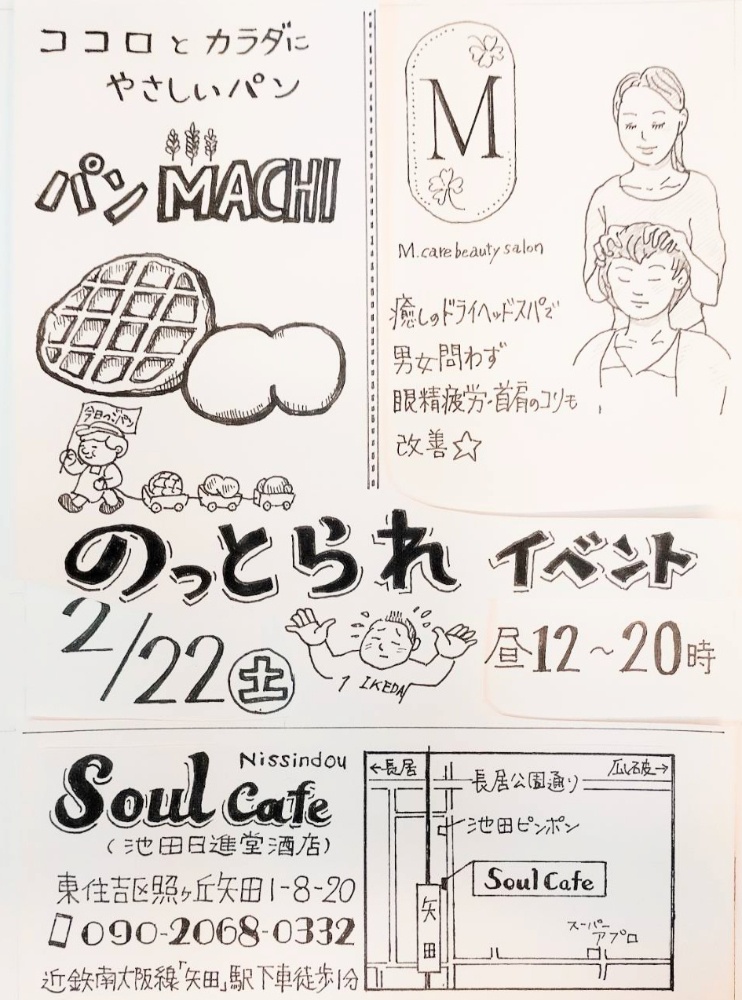 ココロとカラダに
やさしいパン
パンMACHI
今日のごパン
M
M.care beauty salon
癒しのドライヘッドスパで
男女問わず
眼精疲労・首肩のコリも
改善☆
のっとられ イベント
2/22土
1 IKEDA
昼12~20時
Nissindou
Soul Cafe
(池田日進堂酒店)
東住吉区照ヶ丘矢田1-8-20
090-2068-0332
近鉄南大阪線「矢田」駅下車徒歩1分
←長居
長居公園通り
瓜破→
池田ピンポン
Soul Cafe
矢田
スーパー
アプロ